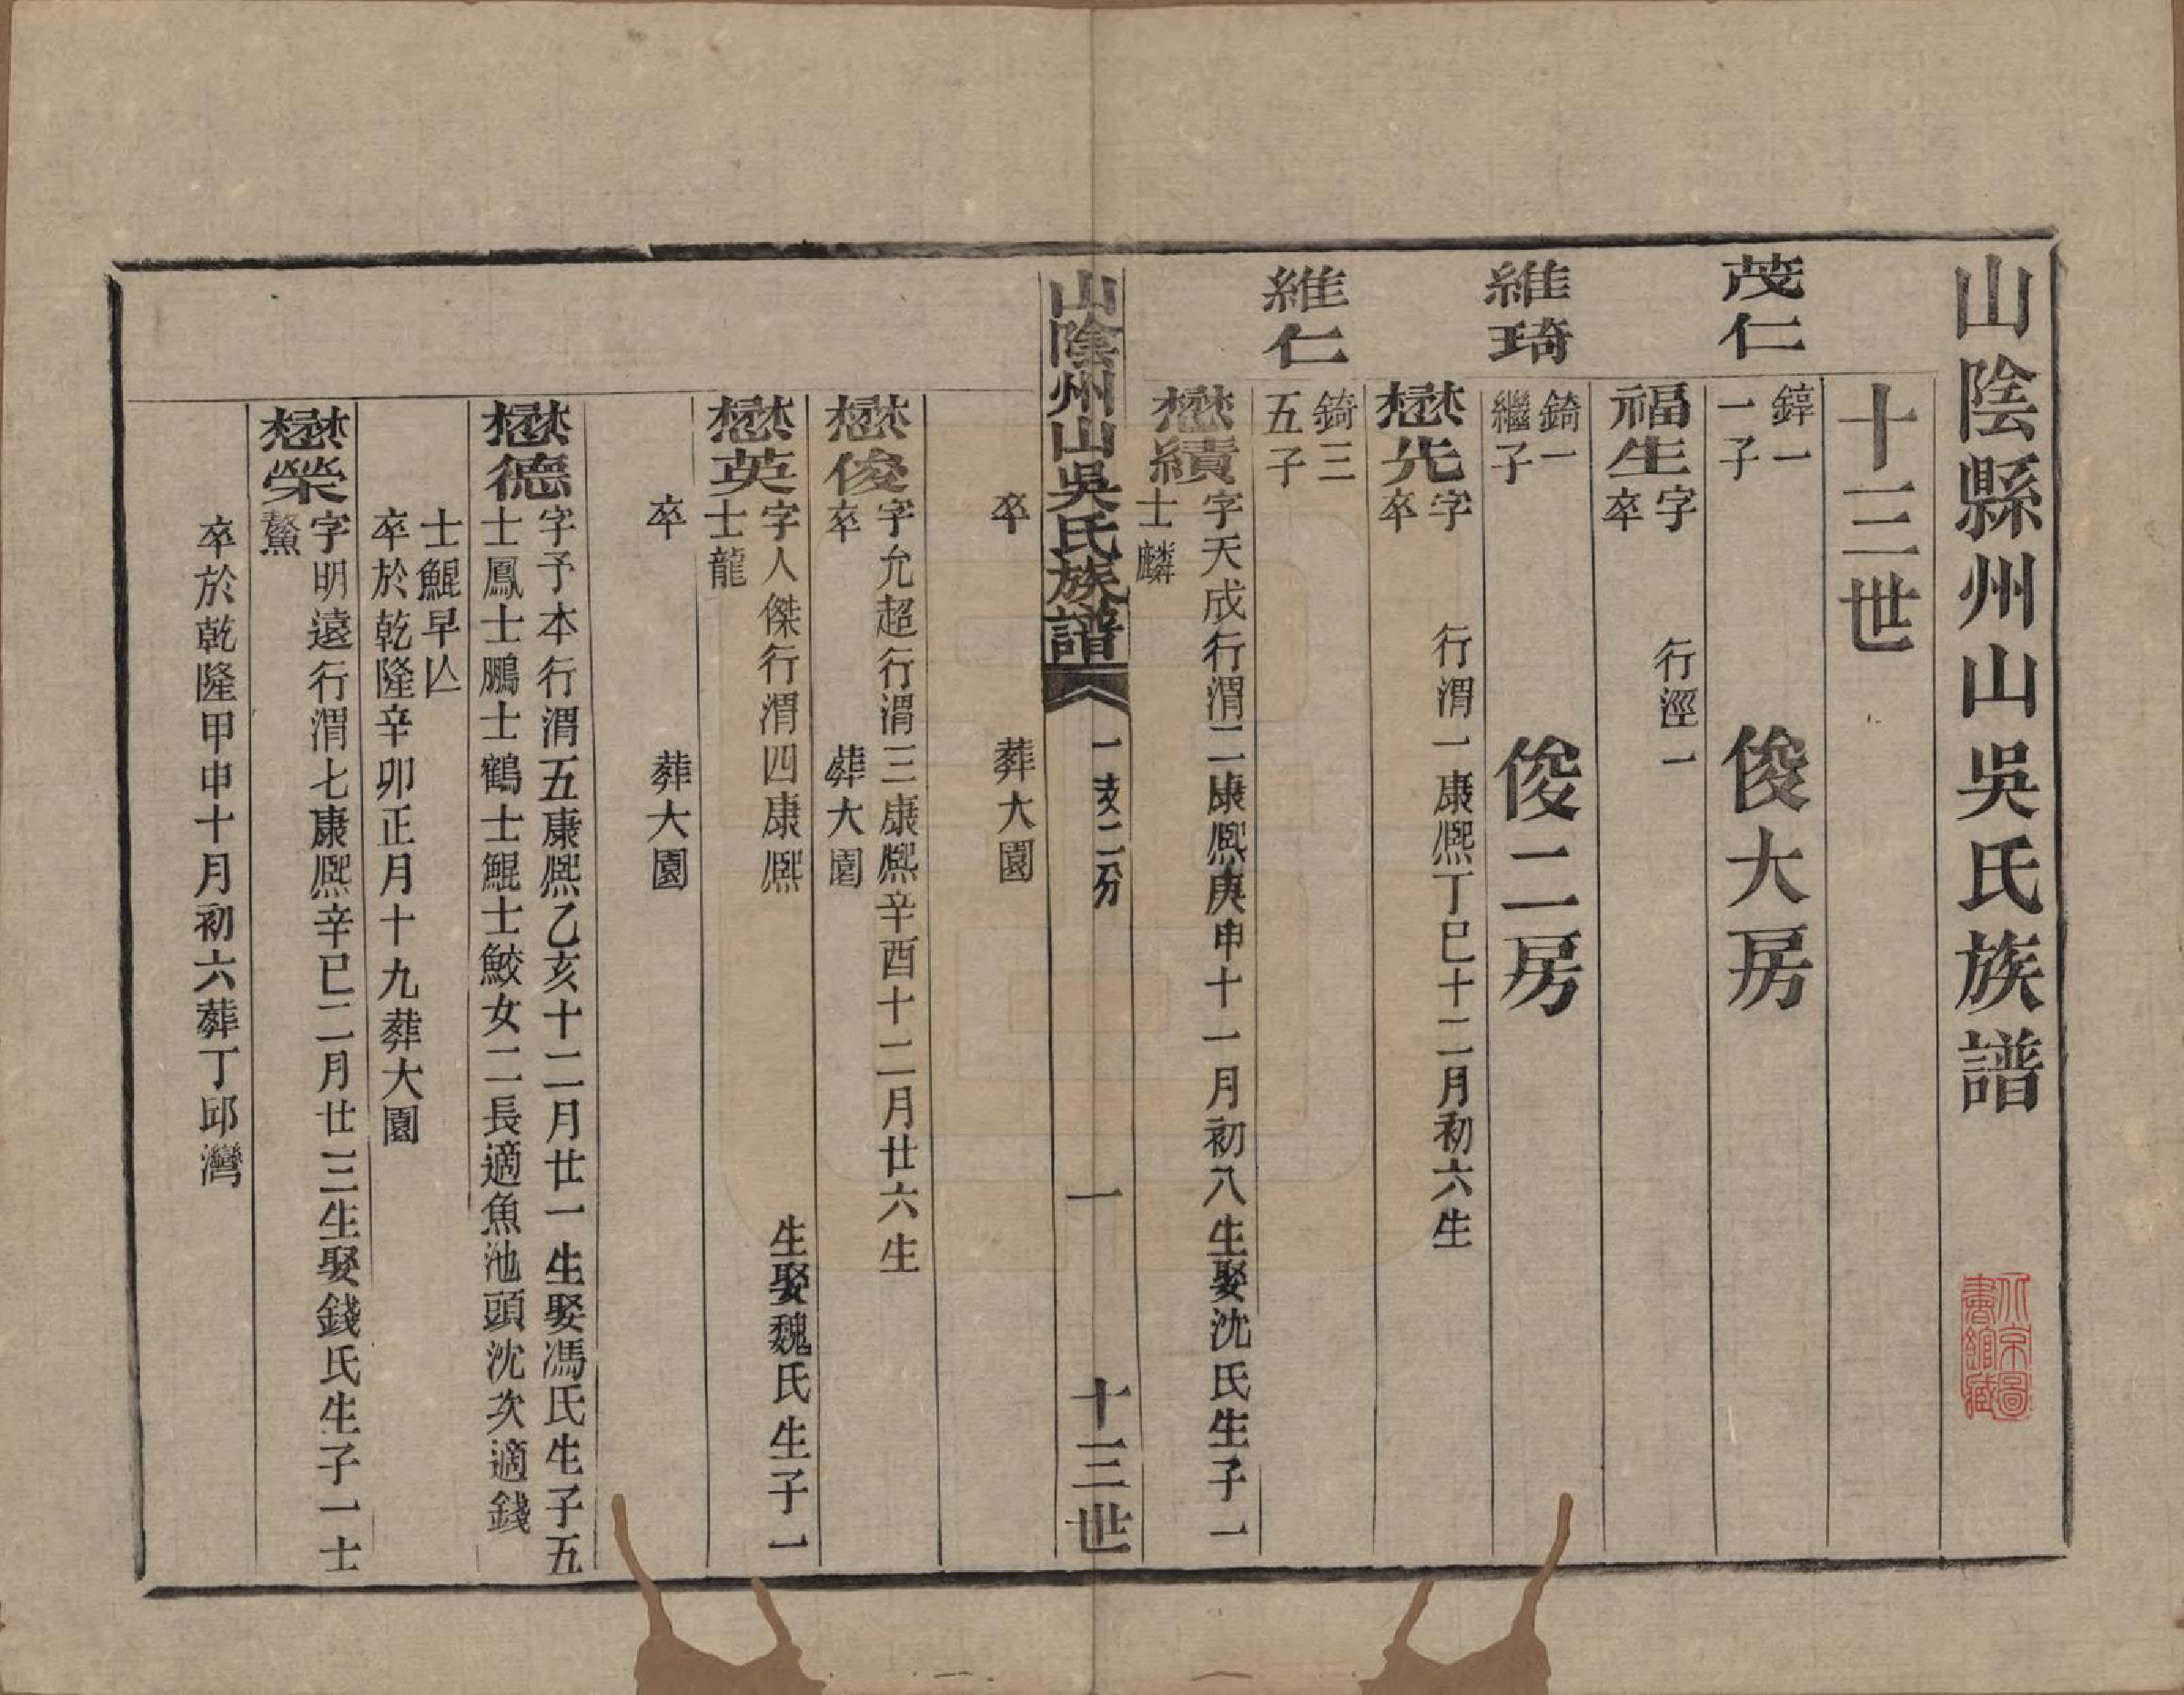 山陰縣州山吳氏族譜
十三世
俊大房
茂仁
錞一
一子
福生
字　行涇一
卒
俊二房
維琦
錡一
繼子
懋先
字　行渭一康熙丁巳十二月初六生
卒
維仁
錡三
五子
懋績
字天成行渭二康熙庚申十一月初八生娶沈氏生子一
士麟
山陰州山吳氏族譜
一支二分
一
十三世
卒　葬大園
懋俊
字允超行渭三康熙辛酉十二月廿六生
卒　葬大園
懋英
字人傑行渭四康熙　生娶魏氏生子一
士龍
卒　葬大園
懋德
字予本行渭五康熙乙亥十二月廿一生娶馮氏生子五
士鳳士鵬士鶴士鯤士鮫女二長適魚池頭沈次適錢
士鯤早亾
卒於乾隆辛卯正月十九葬大園
懋榮
字明遠行渭七康熙辛巳二月廿三生娶錢氏生子一士
鰲
卒於乾隆甲申十月初六葬丁邱灣